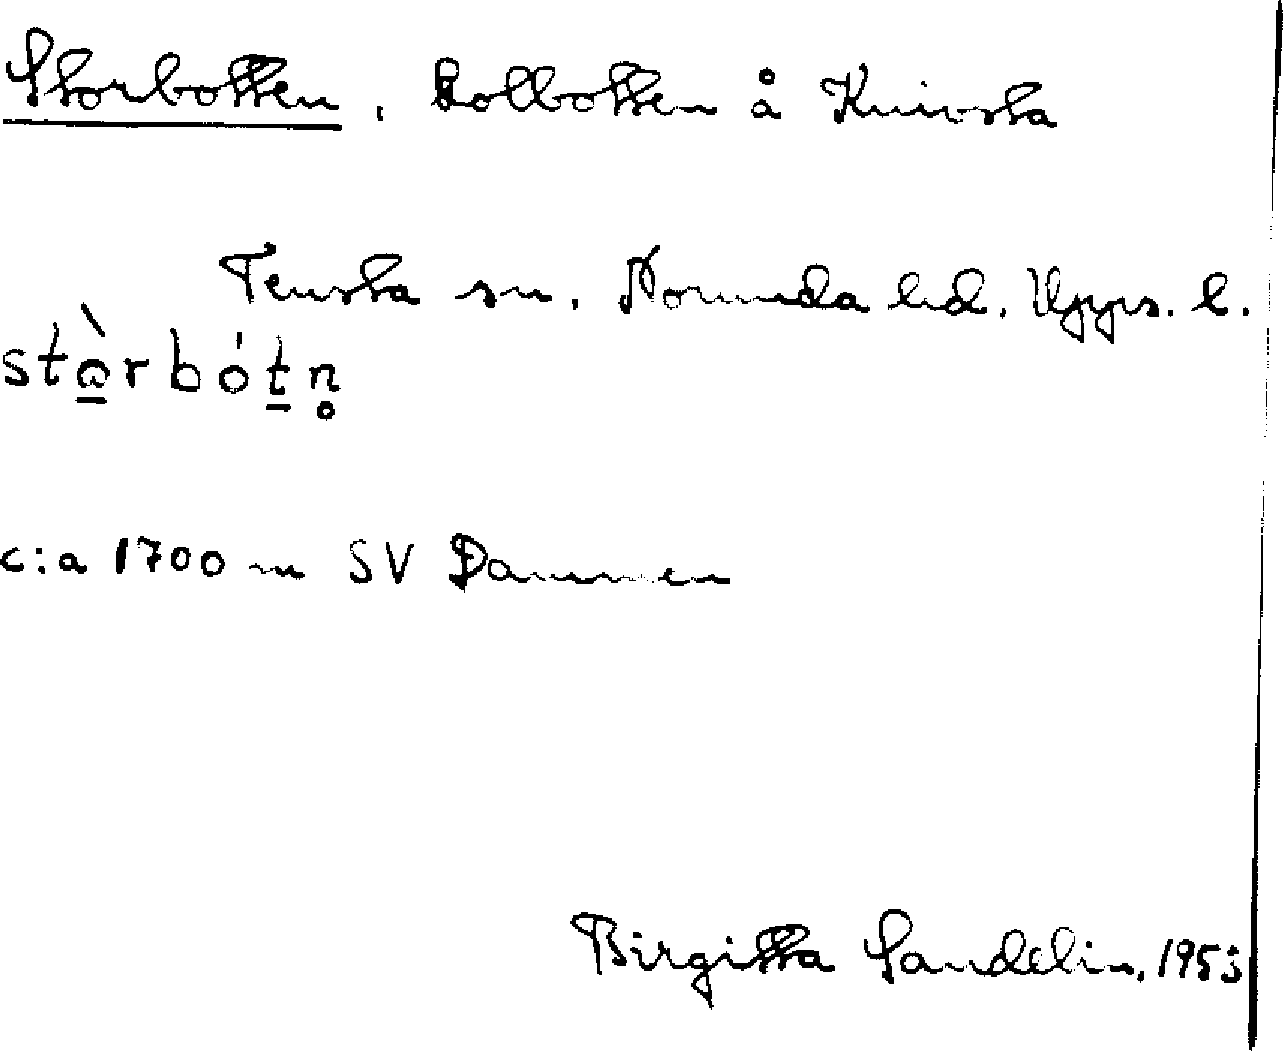 Storbotten, kolbotten å Knivsta
Tensta sn. Norunda hd. Upps. l.
stɷ̀rbótn̥
c:a 1700 m SV Dammen
Birgitta Sandelin, 1953